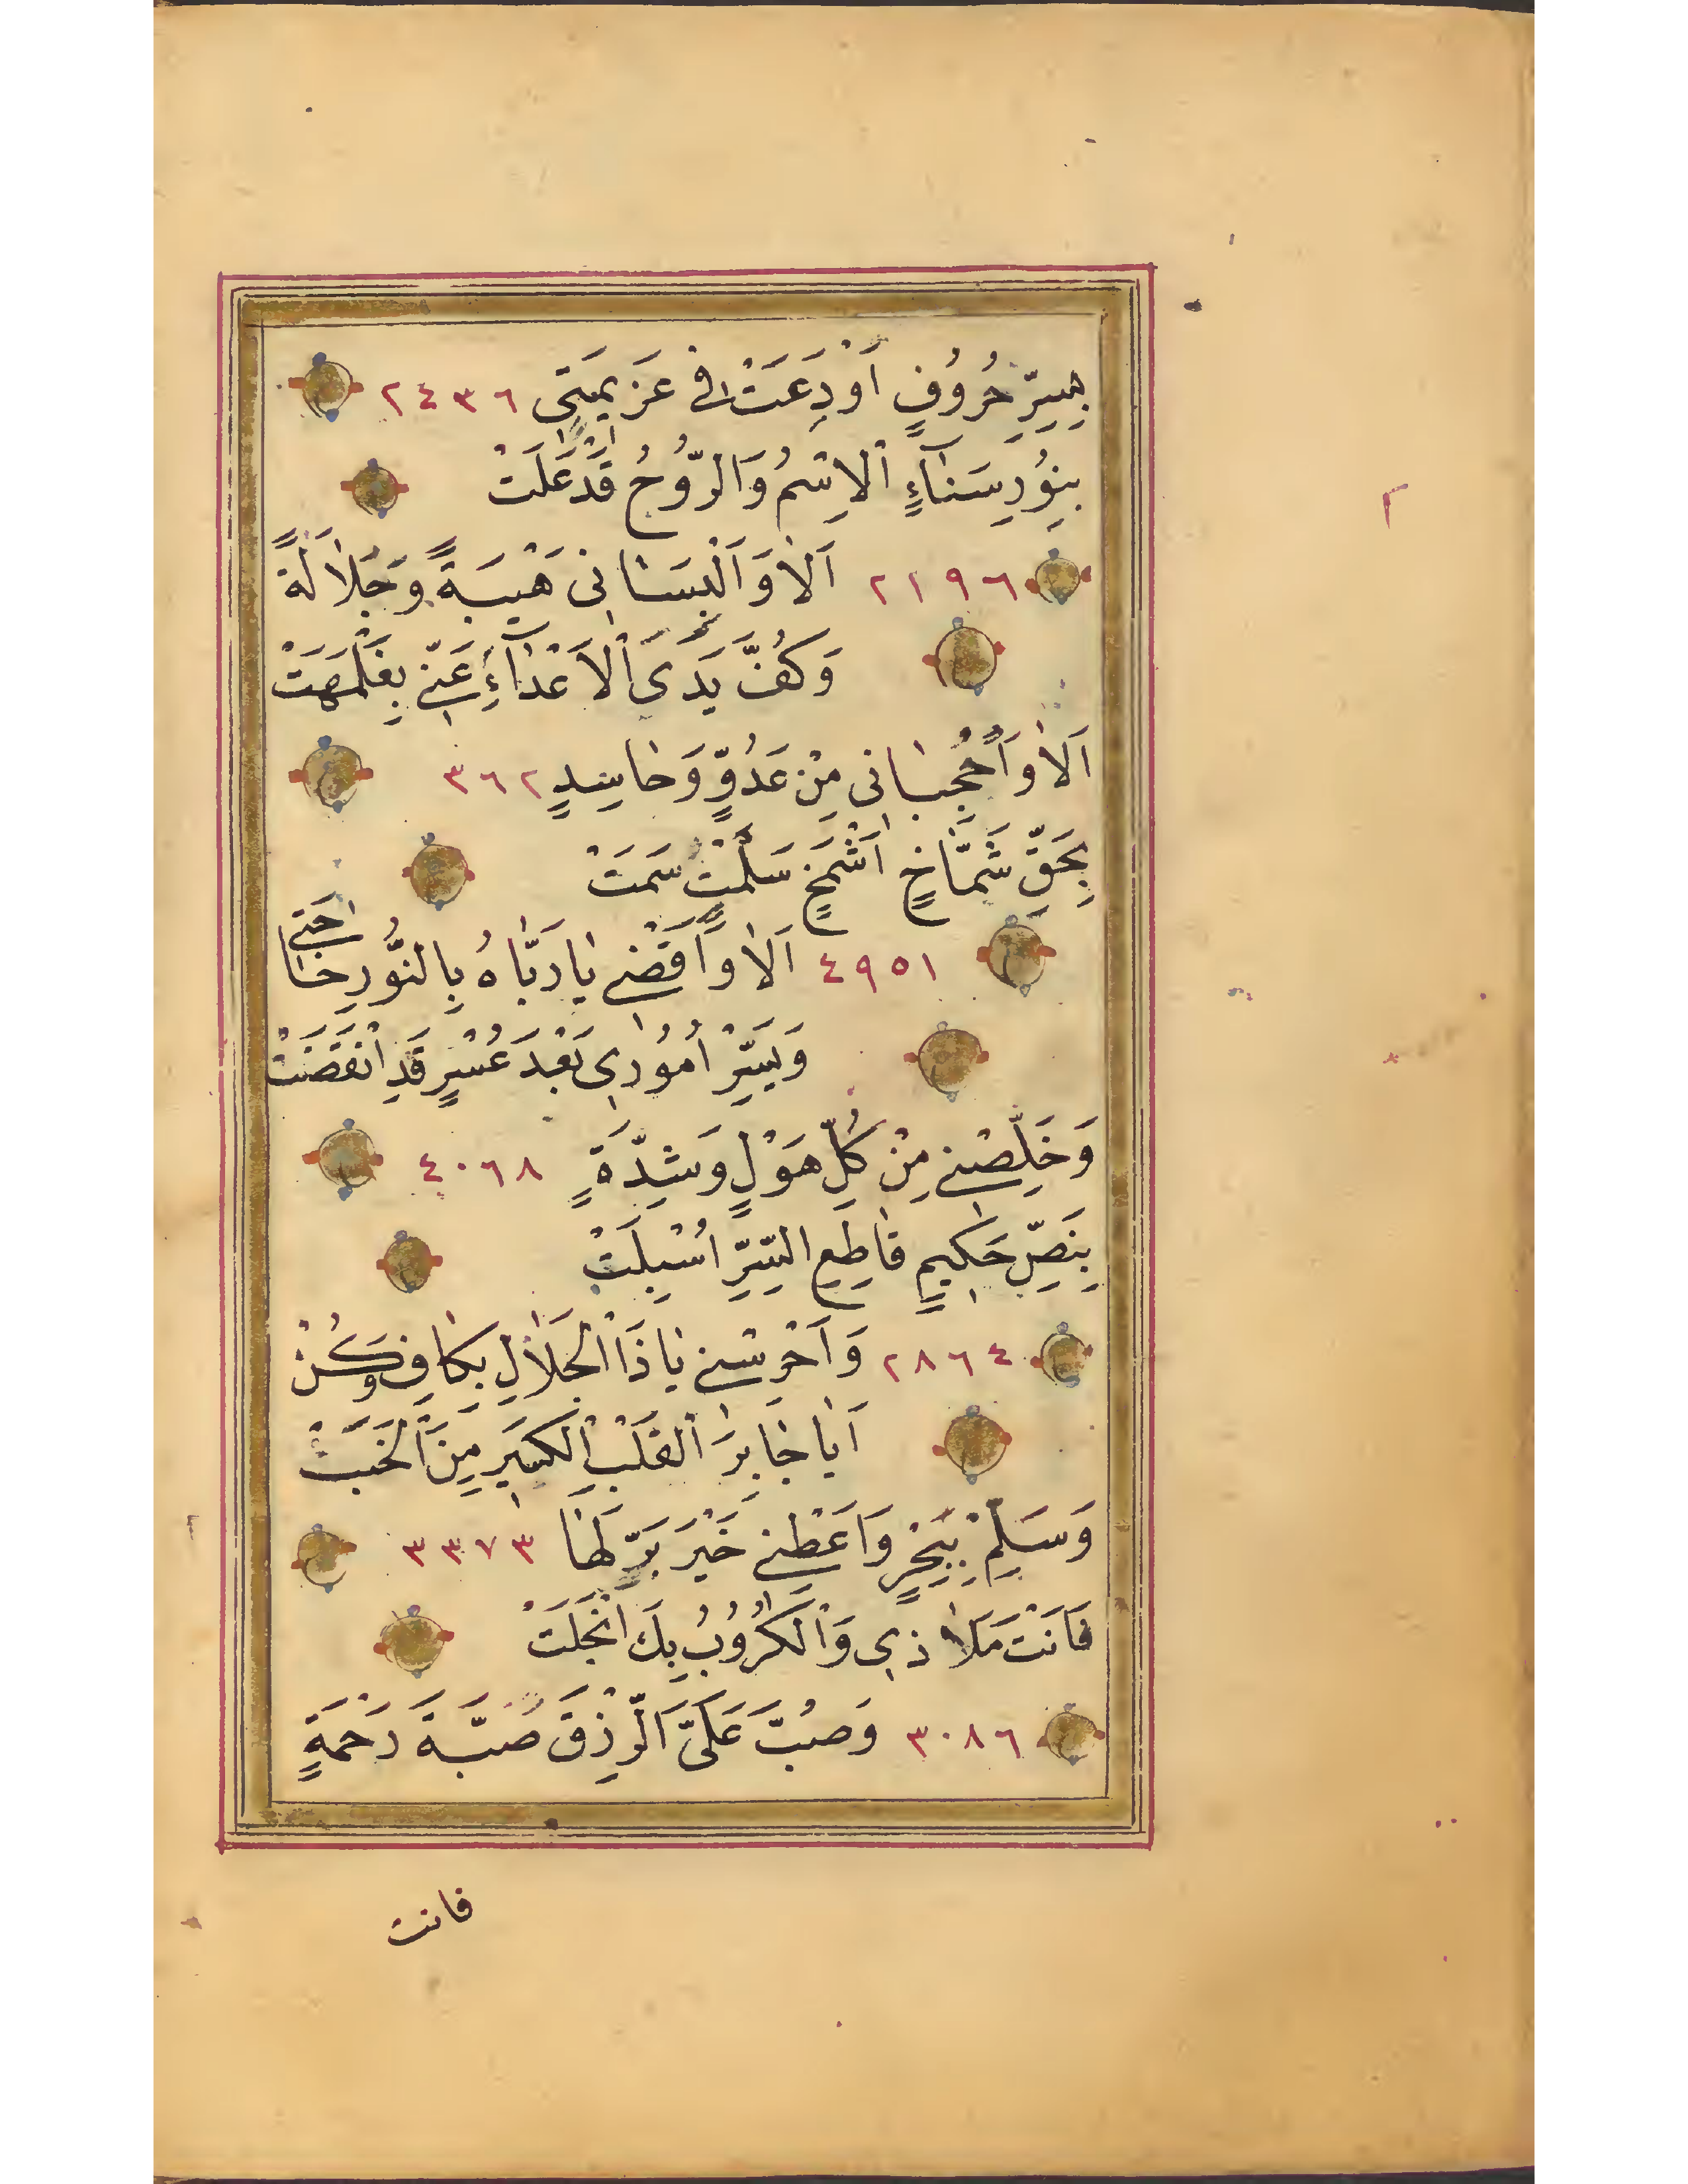 بِسِرِّ حُرُوُفٍ اَوْدِعَتْ فى عَزيمَتِى ٢٤٣٦
بِنُورِ سَنآءٍ الْاِسْمُ وَالرُّوحُ قَدْ عَلَتْ
٢١٩٦ اَلاٰ وَاَلْبِسَانى هَيْبَةً وَجَلاٰلَةً
وَكُفَّ يَدَىَ الْاَعْدآءِ عَنّى بِغَلْمَهَتْ
اَلاٰ وَاَحْجِبَانى مِنْ عَدُوٍّ وَحاسِدٍ ٣٦٢
بِحَقِّ شَمَّاخٍ اَشْمَخٍ سَلْمَتٍ سَمَتْ
٤٩٥١ اَلاٰ وَاَقْضِى يٰا رَبَّاهُ بِالنُّورِ حٰاجَتى
وَيَسِّرْ اُمُوُرى بَعْدَ عُسْرٍ قَدِ انْقَضَتْ
وَخَلِّصْنى مِنْ كُلِّ هَوْلٍ وَشِدَّةٍ ٤٠٦٨
بِنَصِّ حَكيمٍ قٰاطِعِ السِّرِّ اُسْبِلَتْ
٢٨٦٤ وَاَحْرِسْنى يٰا ذَا الْجَلاٰلِ بِكٰافِ وَكُنْ
اَيٰا جٰابِرَ الْقَلْبِ الْكَسيرِ مِنَ الْخَبَتْ
وَسَلِّمْ بِبَحْرٍ وَاَعْطِنى خَيْرَ بَرِّهٰا ٣٣٧٣
فَاَنْتَ مَلاٰذى وَالْكُرُوُبُ بِكَ انْجَلَتْ
٣٠٨٦ وَصُبَّ عَلَىَّ الرِّزْقَ صُبَّةَ رَحْمَةٍ
فانت